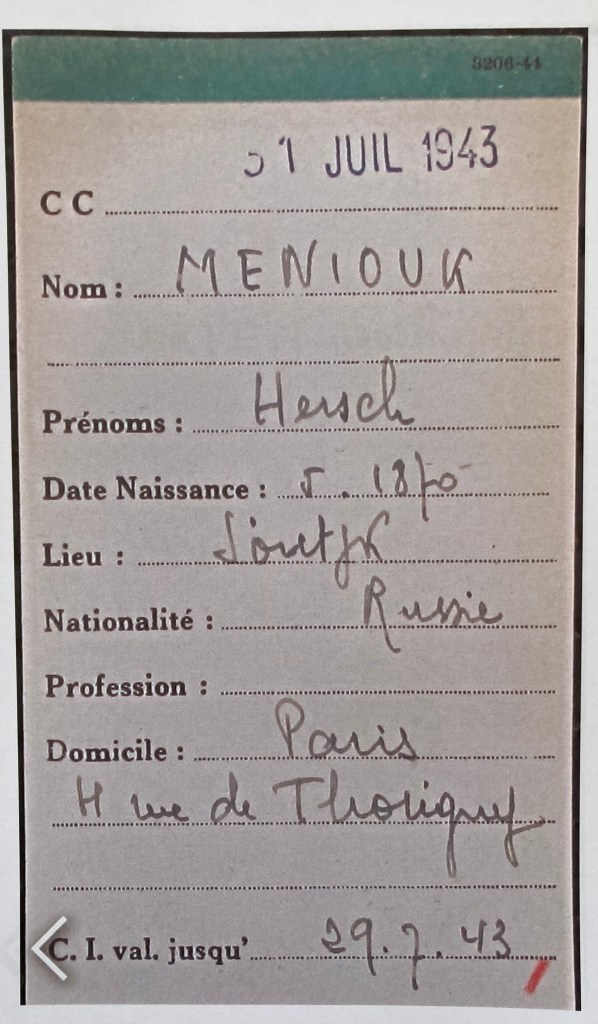 3206-44
31 JUIL 1943
C C
Nom : MENIOUK
Prénoms : Hersch
Date Naissance : 5. 1870
Lieu :
Nationalité : Russie
Profession :
Domicile : Paris
4 rue de Thorigny
C. I. val. jusqu' 29.7.43